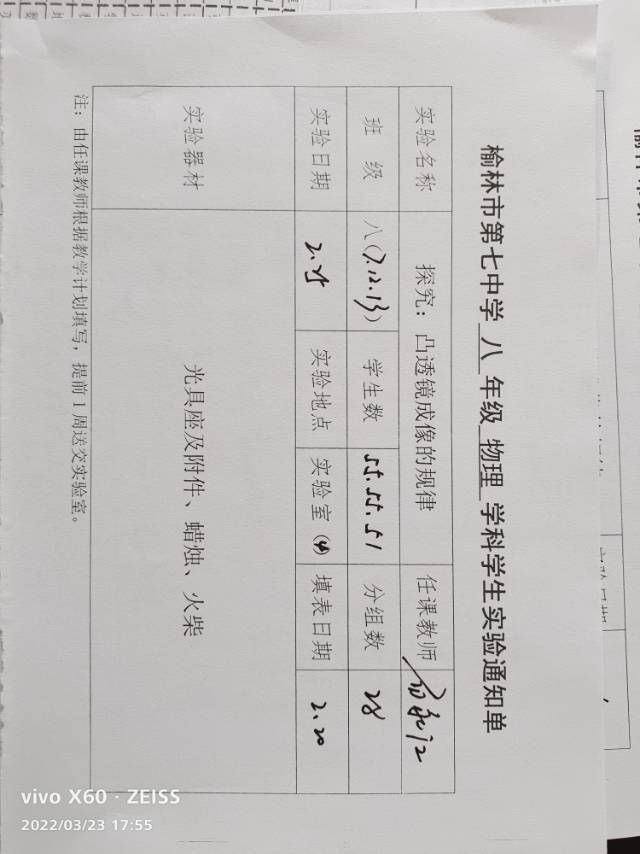 榆林市第七中学 八 年级 物理 学科学生实验通知单
实验名称 探究：凸透镜成像的规律 任课教师
班 级 八(7.12.13) 学生数 55.55.51 分组数 28
实验日期 2.25 实验地点 实验室(4) 填表日期 2.20
实验器材 光具座及附件、蜡烛、火柴
注：由任课教师根据教学计划填写，提前1周送交实验室。
vivo X60 · ZEISS
2022/03/23 17:55